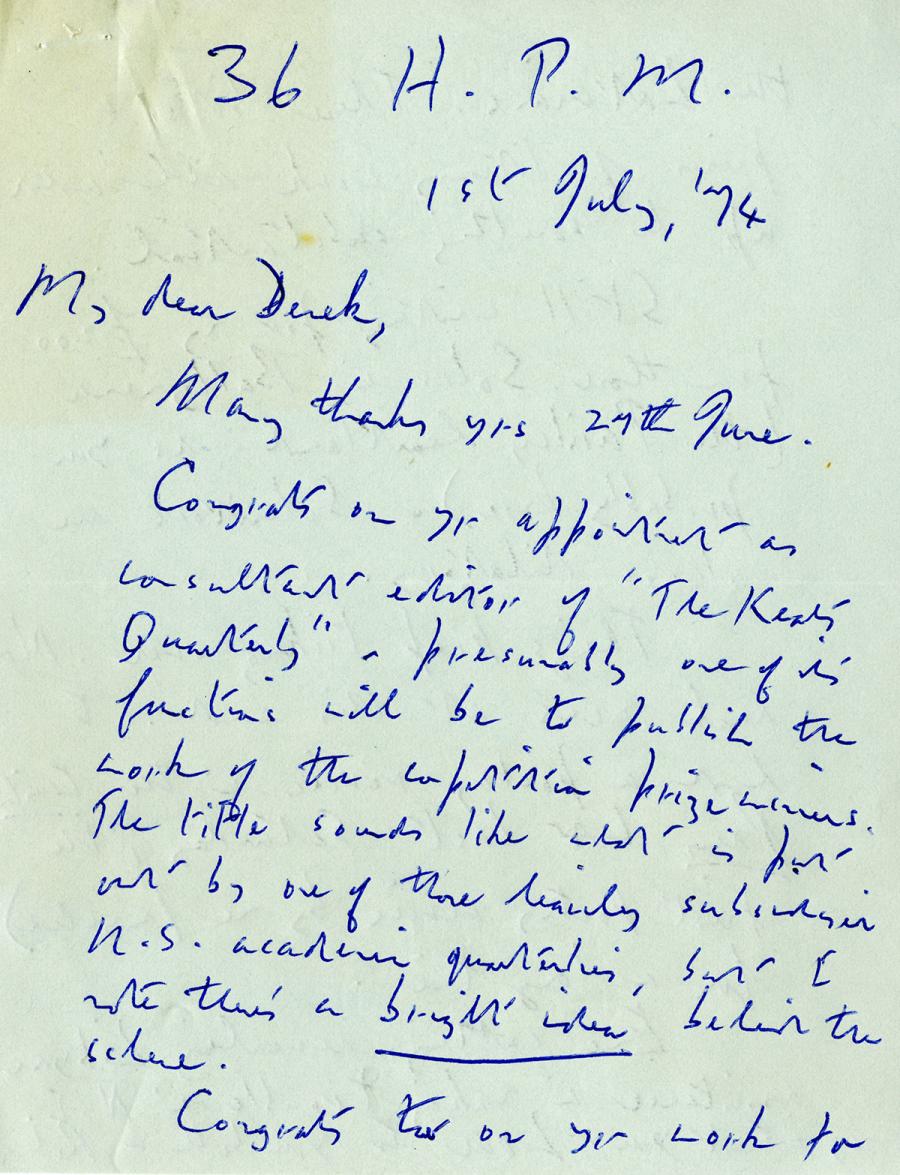 36 H. P. M.
1st July, '74
My dear Derek,
Many thanks yrs 27th June.
Congrats on yr appointment as
consultant editor of "The Keats
Quarterly" - presumably one of its
functions will be to publish the
work of the competition prizewinners.
The title sounds like what is put
out by one of those heavily subsidised
U.S. academic quarterlies, but I
note there's a bright idea behind the
scheme.
Congrats too on yr work for